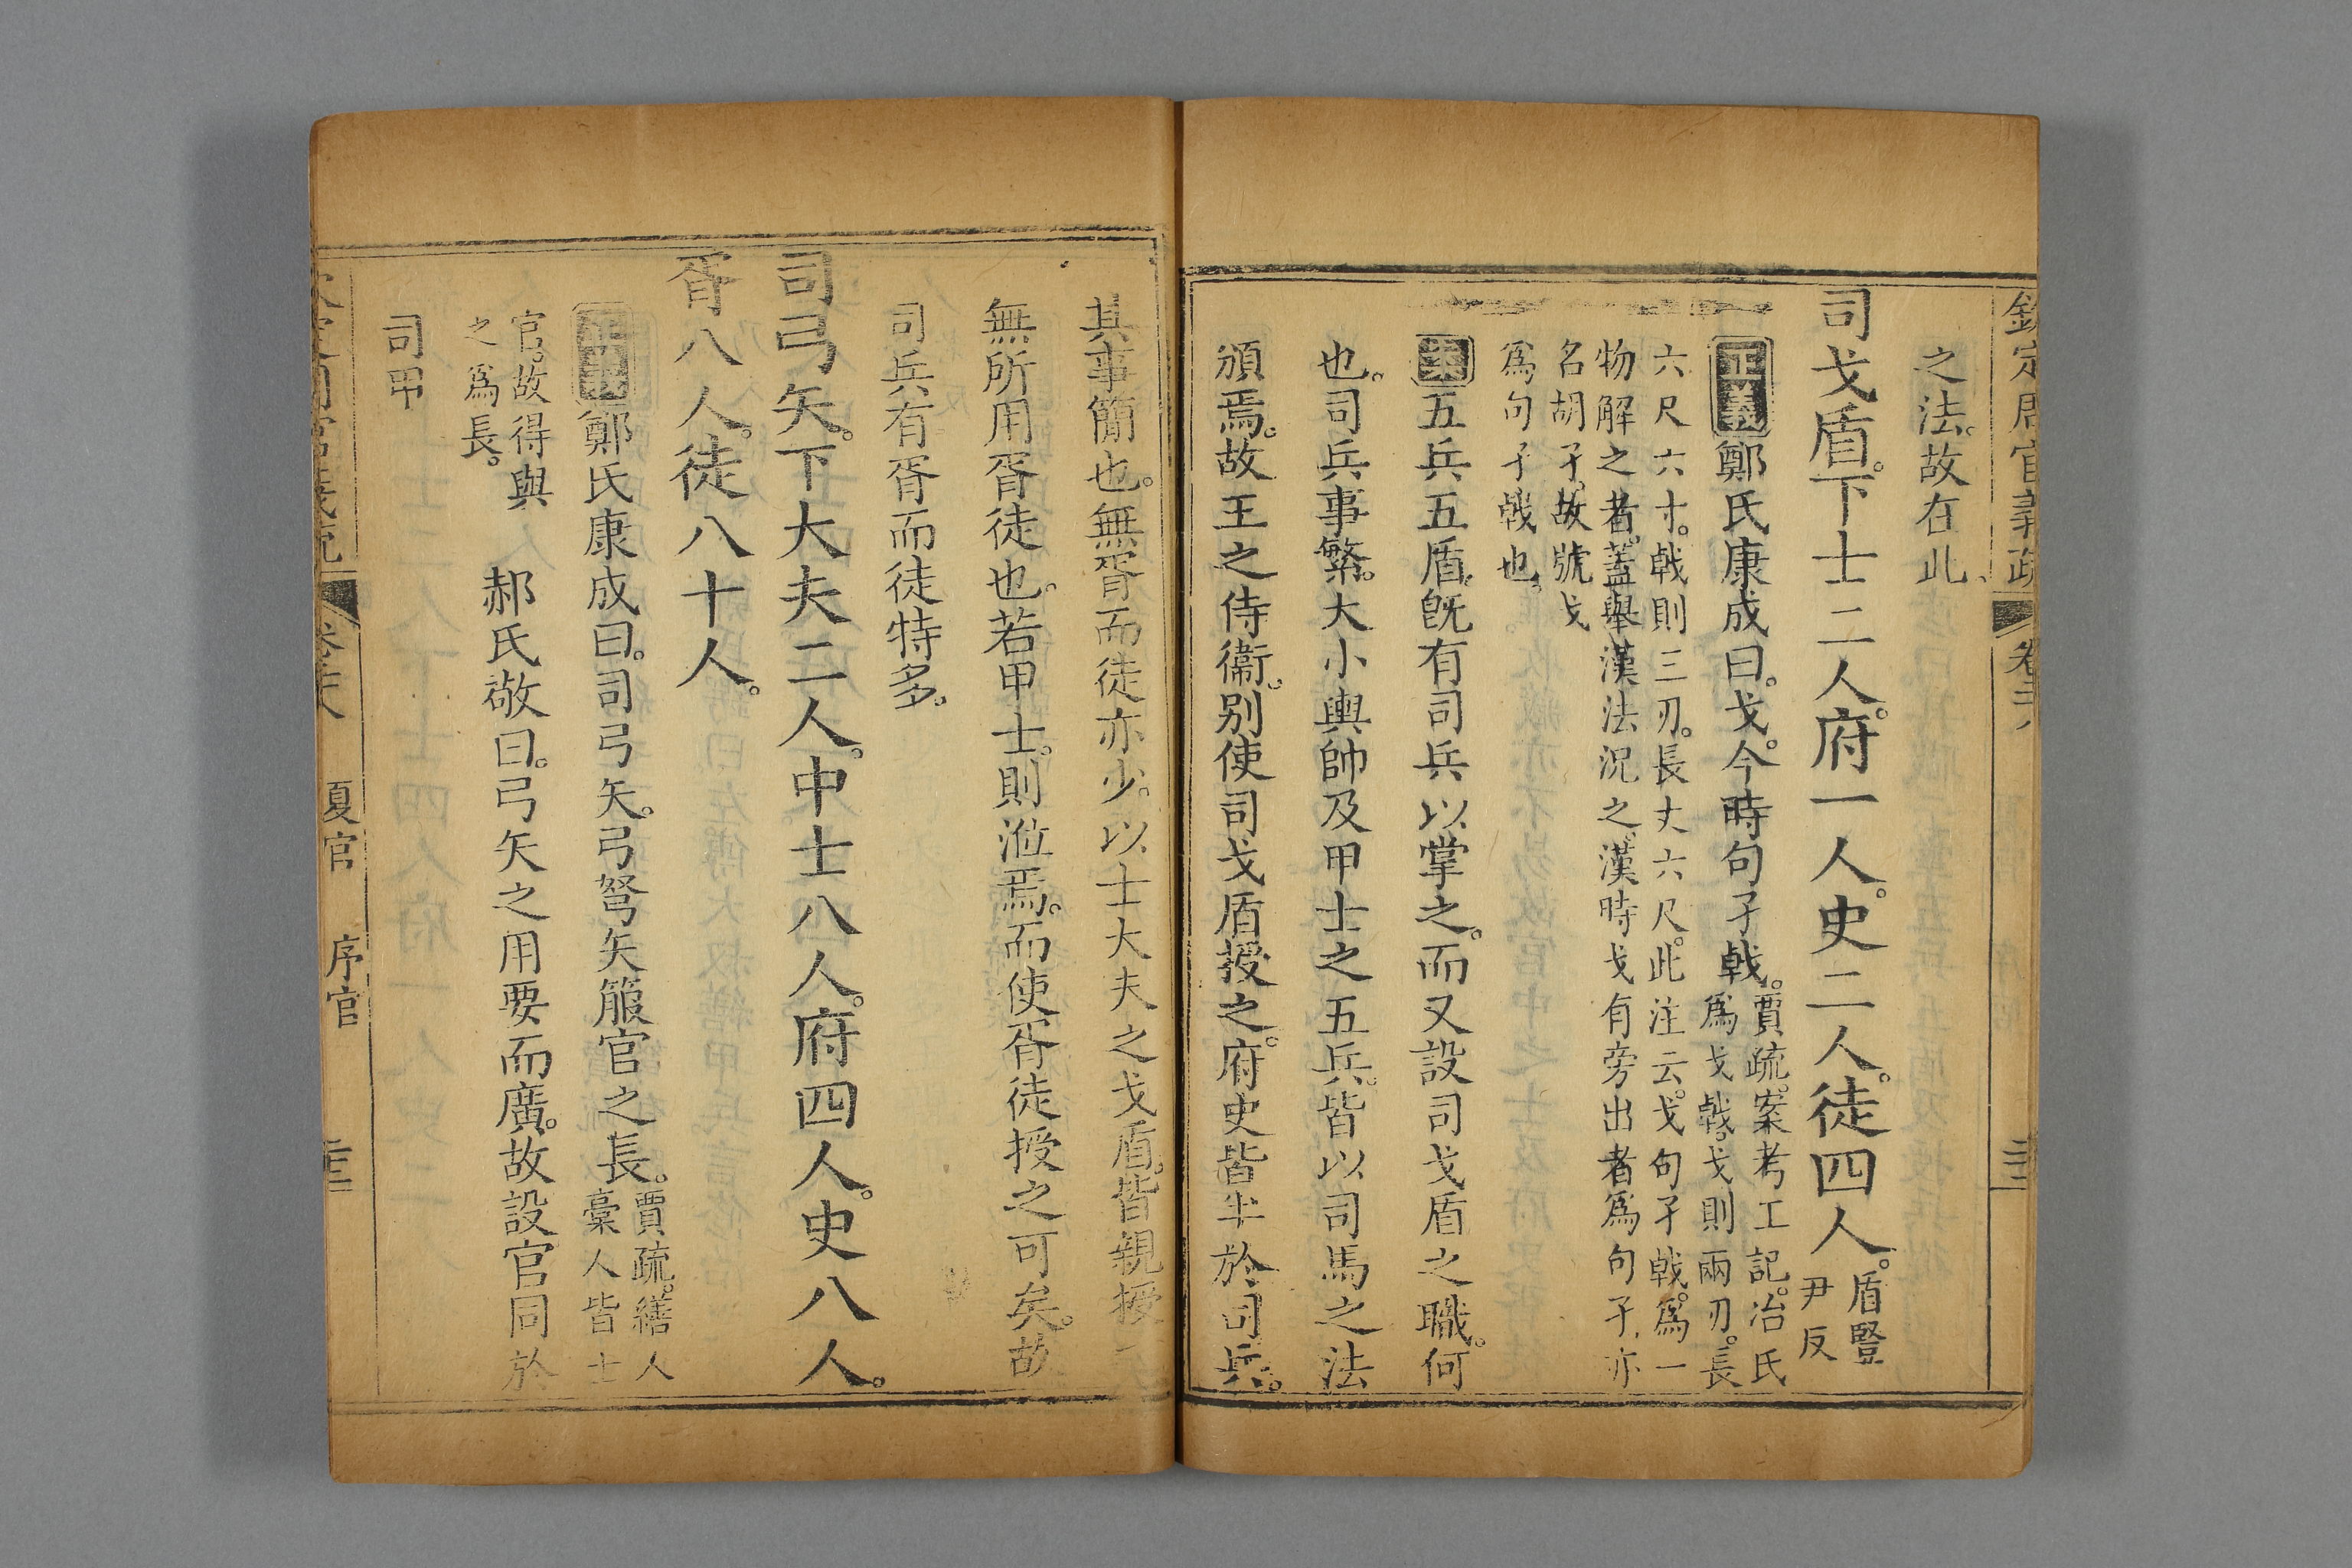 欽定周官義疏 卷二八
之法。故在此。
司戈盾。下士二人。府一人。史二人。徒四人。盾豎
尹反
正義鄭氏康成曰。戈。今時句孑戟。賈疏。案考工記。冶氏
爲戈戟。戈則兩刃。長
六尺六寸。戟則三刃。長丈六尺。此注云。戈句孑戟。爲一
物解之者。蓋舉漢法況之。漢時戈有旁出者爲句孑。亦
名胡孑。故號戈
爲句孑戟也。
案五兵五盾。旣有司兵以掌之。而又設司戈盾之職。何
也。司兵事繁。大小輿帥及甲士之五兵。皆以司馬之法
頒焉。故王之侍衞。別使司戈盾授之。府史皆半於司兵。
其事簡也。無胥而徒亦少。以士大夫之戈盾。皆親授
無所用胥徒也。若甲士。則涖焉。而使胥徒授之可矣。故
司兵有胥而徒特多。
司弓矢。下大夫二人。中士八人。府四人。史八人。
胥八人。徒八十人。
正義鄭氏康成曰。司弓矢。弓弩矢箙官之長。賈疏。繕人
稾人皆士
官。故得與
之爲長。
郝氏敬曰。弓矢之用要而廣。故設官同於
司甲
夏官 序官